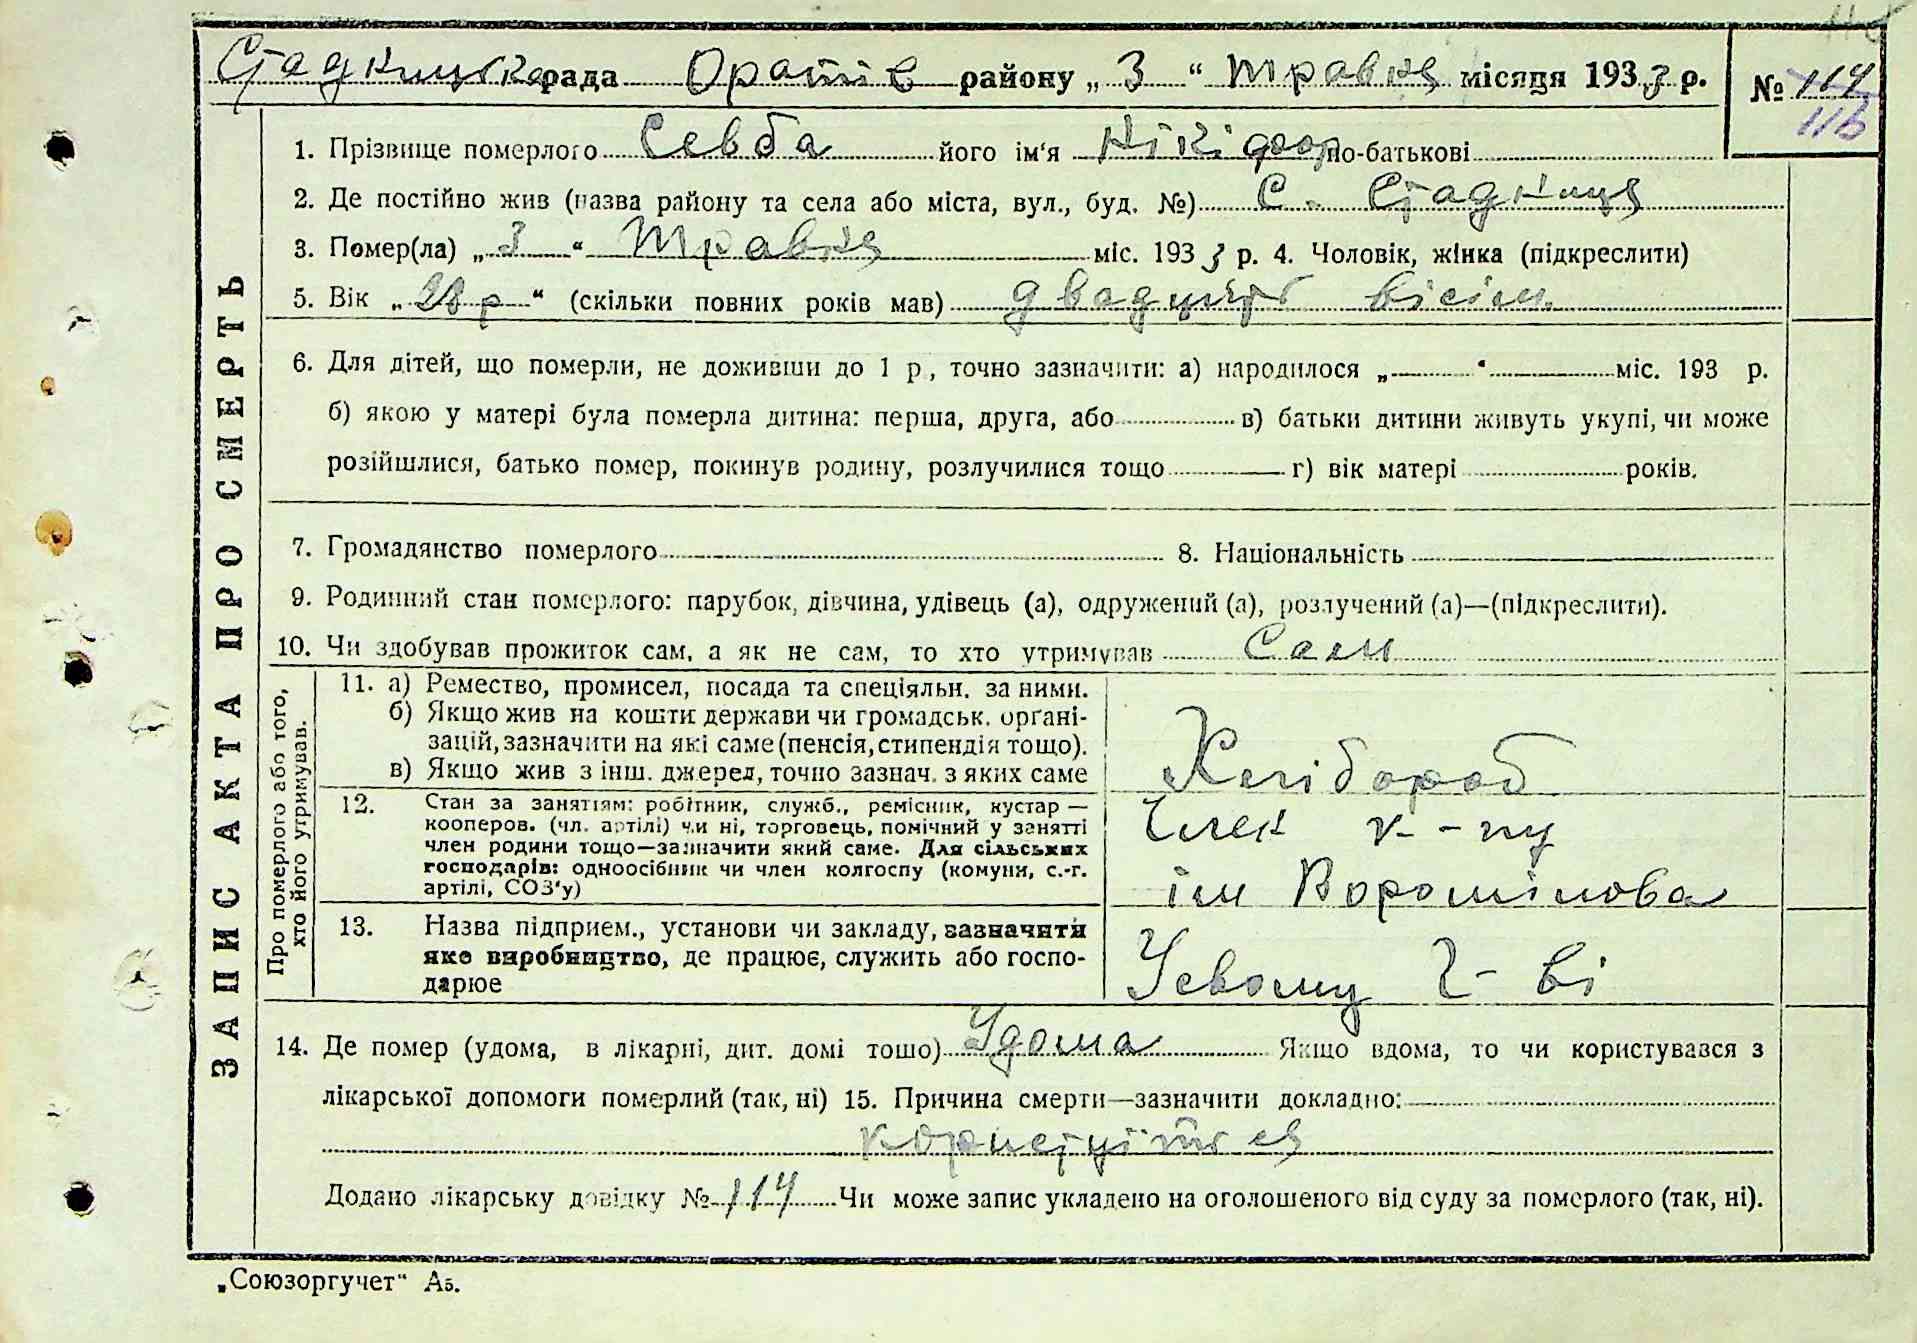 Стадницька рада Оратів району „ 3 “ травня місяця 1933 р. № 114
116
1. Прізвище померлого Севба його ім'я Нікіфор по-батькові
2. Де постійно жив (назва району та села або міста, вул., буд. №) С. Стадниця
3. Помер(ла) „ 3 “ травня міс. 1933 р. 4. Чоловік, жінка (підкреслити)
5. Вік „ 28 р “ (скільки повних років мав) двадцять вісім
6. Для дітей, що померли, не доживши до 1 р., точно зазначити: а) народилося „ “ міс. 193 р.
б) якою у матері була померла дитина: перша, друга, або в) батьки дитини живуть укупі, чи може
розійшлися, батько помер, покинув родину, розлучилися тощо г) вік матері років.
7. Громадянство померлого 8. Національність
9. Родинний стан померлого: парубок, дівчина, удівець (а), одружений (а), розлучений (а)—(підкреслити).
10. Чи здобував прожиток сам, а як не сам, то хто утримував Сам
11. а) Ремество, промисел, посада та спеціяльн. за ними.
б) Якщо жив на кошти держави чи громадськ. орґані-
зацій, зазначити на які саме (пенсія, стипендія тощо).
в) Якщо жив з інш. джерел, точно зазнач. з яких саме
Хлібороб
12. Стан за заняттям: робітник, служб., ремісник, кустар —
кооперов. (чл. артілі) чи ні, торговець, помічний у занятті
член родини тощо—зазначити який саме. Для сільських
господарів: одноосібник чи член колгоспу (комуни, с.-г.
артілі, СОЗ'у)
Член к-пу
ім Ворошілова
13. Назва підприєм., установи чи закладу, зазначити
яке виробництво, де працює, служить або госпо-
дарює
Усвому г-ві
14. Де помер (удома, в лікарні, дит. домі тощо) Удома Якщо вдома, то чи користувався з
лікарської допомоги померлий (так, ні) 15. Причина смерти—зазначити докладно:
Додано лікарську довідку № 114 Чи може запис укладено на оголошеного від суду за померлого (так, ні).
ЗАПИС АКТА ПРО СМЕРТЬ
Про померлого або того,
хто його утримував.
„Союзоргучет“ А5.